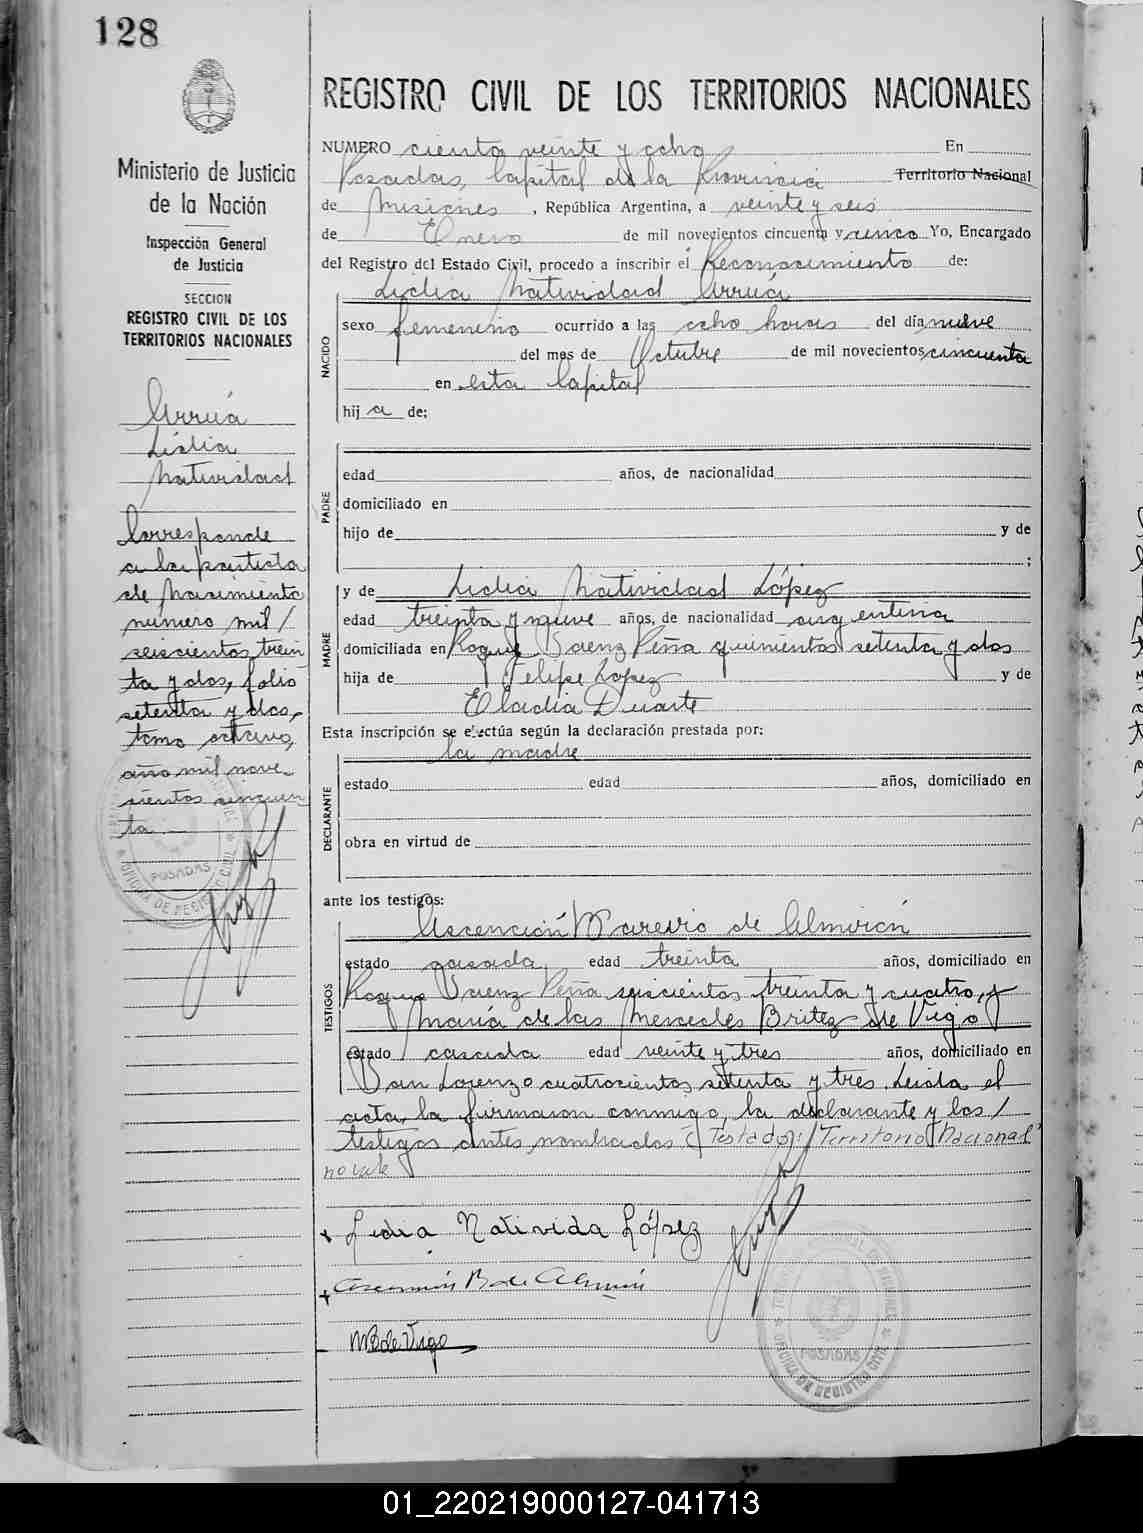 128
REGISTRO CIVIL DE LOS TERRITORIOS NACIONALES
Ministerio de Justicia
de la Nación
Inspección General
de Justicia
SECCION
REGISTRO CIVIL DE LOS
TERRITORIOS NACIONALES
Arrúa
Lidia
Natividad
Corresponde
a la partida
de Nacimiento
número mil/
seiscientos trein
ta y dos, folio
setenta y dos,
tomo octavo,
año mil nove-
cientos cincuen
ta.
POSADAS
NUMERO ciento veinte y ocho En
Posadas, Capital de la Provincia Territorio Nacional
de Misiones, República Argentina, a veinte y seis
de Enero de mil novecientos cincuenta y cinco Yo, Encargado
del Registro del Estado Civil, procedo a inscribir el Reconocimiento de:
Lidia Natividad Arrúa
NACIDO
sexo femenino ocurrido a las ocho horas del día nueve
del mes de Octubre de mil novecientos cincuenta
en esta Capital
hij a de:
PADRE
edad años, de nacionalidad
domiciliado en
hijo de y de
;
MADRE
y de Lidia Natividad López
edad treinta y nueve años, de nacionalidad argentina
domiciliada en Roque Saenz Peña quinientos setenta y dos
hija de Felipe Lopez y de
Eladia Duarte
Esta inscripción se efectúa según la declaración prestada por:
la madre
DECLARANTE
estado edad años, domiciliado en
obra en virtud de
ante los testigos:
TESTIGOS
Ascención de Almirón
estado casada edad treinta años, domiciliado en
Roque Saenz Peña seiscientos treinta y cuatro, y
María de las Mercedes Britez de Vigo
estado casada edad veinte y tres años, domiciliado en
San Lorenzo cuatrocientos setenta y tres. Leida el
acta, la firmaron conmigo, la declarante y los/
testigos antes nombrados.- Testado: "Territorio Nacional"
no vale
Lidia Nativida López
Ascención B de Almirón
MB de Vigo
POSADAS
01_220219000127-041713